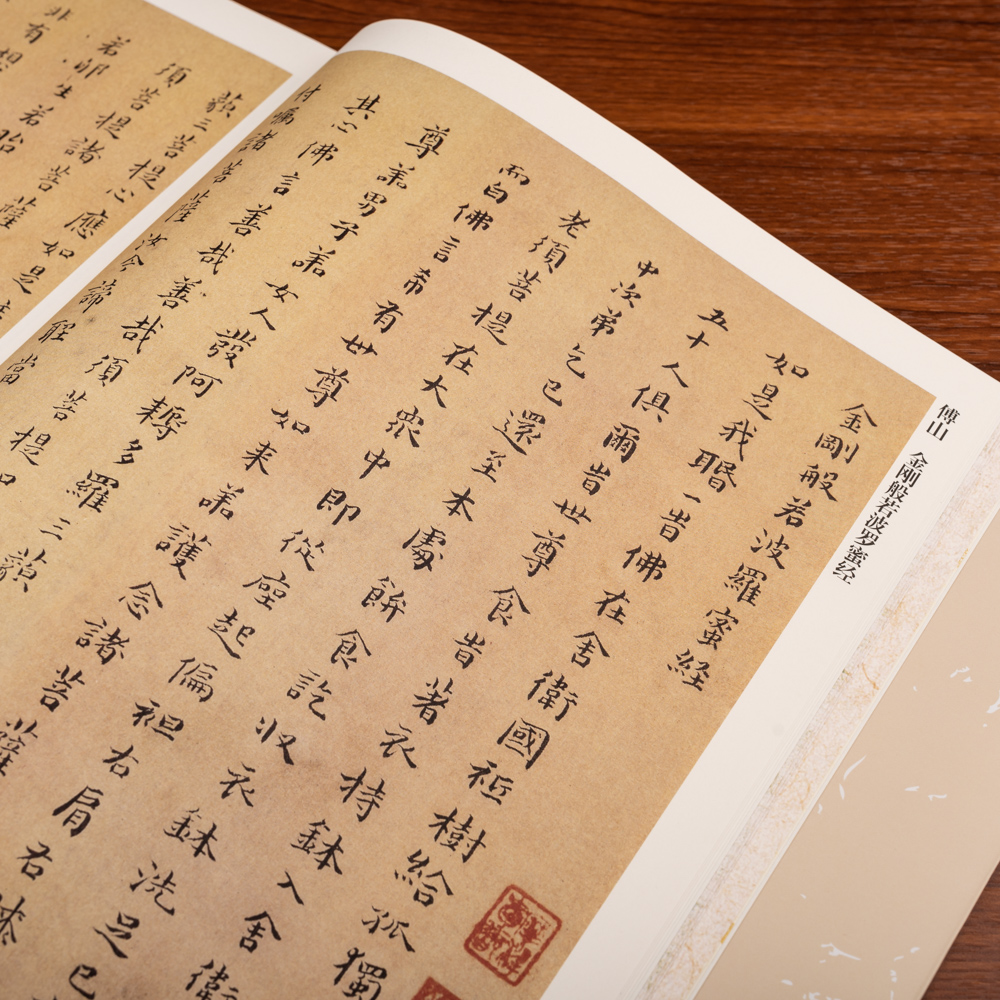 傅山 金刚般若波罗蜜经
金剛般若波羅蜜経
如是我䎽一昔佛在舍衛國祗樹給孤獨
五十人俱爾昔世尊食昔著衣持鉢入舍衛
中次弟乞已還至本處餅食訖収衣鉢洗足已
老須菩提在大衆中即從座起偏袒右肩右膝
而白佛言希有世尊如来善護念諸菩薩
尊善男子善女人發阿耨多羅三藐
其心佛言善哉善哉須菩提
付囑諸菩薩汝今諦聽當
藐三菩提心應如是
須菩提諸菩薩
若卵生若胎
非有想